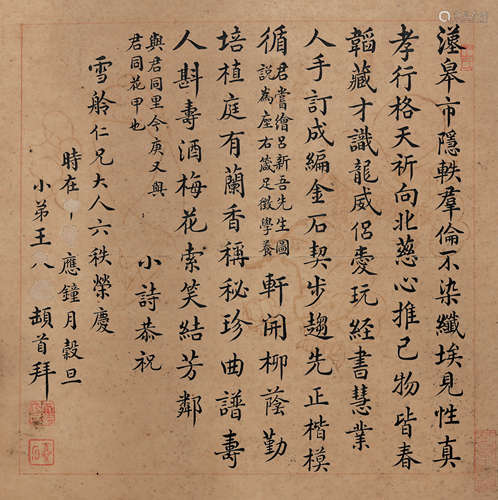 漢皋市隱軼羣倫不染纖埃見性真
孝行格天祈向北慈心推己物皆春
韜藏才識龍威侶愛玩經書慧業
人手訂成編金石契步趨先正楷模
循
君嘗繪呂新吾先生圖
説為座右箴足徵學養
軒開柳蔭勤
培植庭有蘭香稱秘珍曲譜壽
人斟壽酒梅花索笑結芳鄰
與君同里今庚又與
君同花甲也
小詩恭祝
雪舲仁兄大人六秩榮慶
時在 應鐘月穀旦
小弟王 八 頓首拜